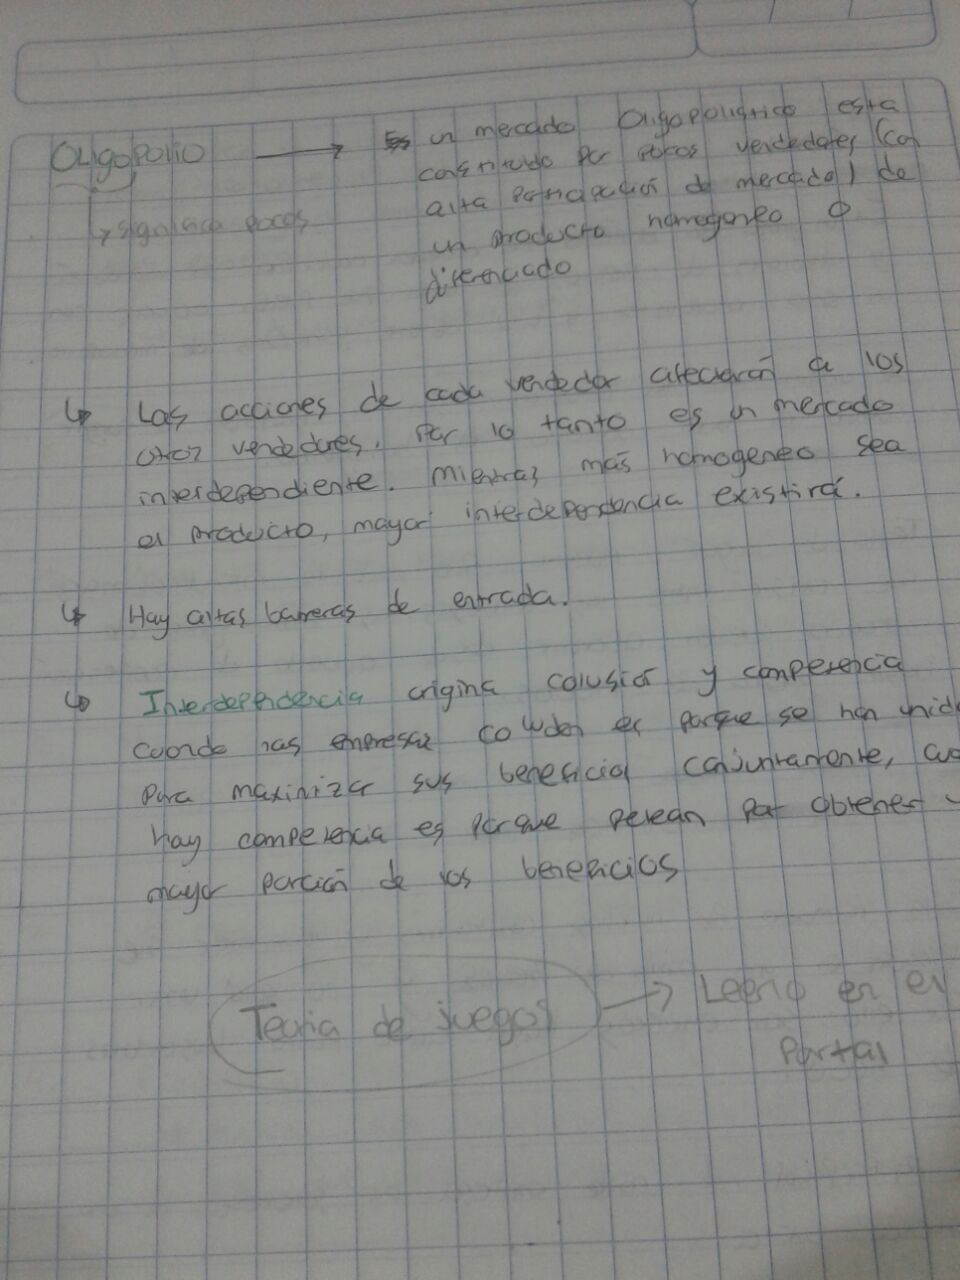 Oligopolio → un mercado Oligopolistico esta
constituido por pocos vendedores (con
alta participación de mercado) de
un producto homogeneo o
diferenciado
↳ significa pocos
↳ Las acciones de cada vendedor afectarán a los
otros vendedores. Por lo tanto es un mercado
interdependiente. Mientras más homogeneo sea
el producto, mayor interdependencia existirá.
↳ Hay altas barreras de entrada.
↳ Interdependencia origina colusión y competencia
cuando las empresas coluden es porque se han unido
para maximizar sus beneficios conjuntamente,
hay competencia es porque pelean por obtener
mayor porción de los beneficios
Teoria de juegos → Leerlo en el
portal